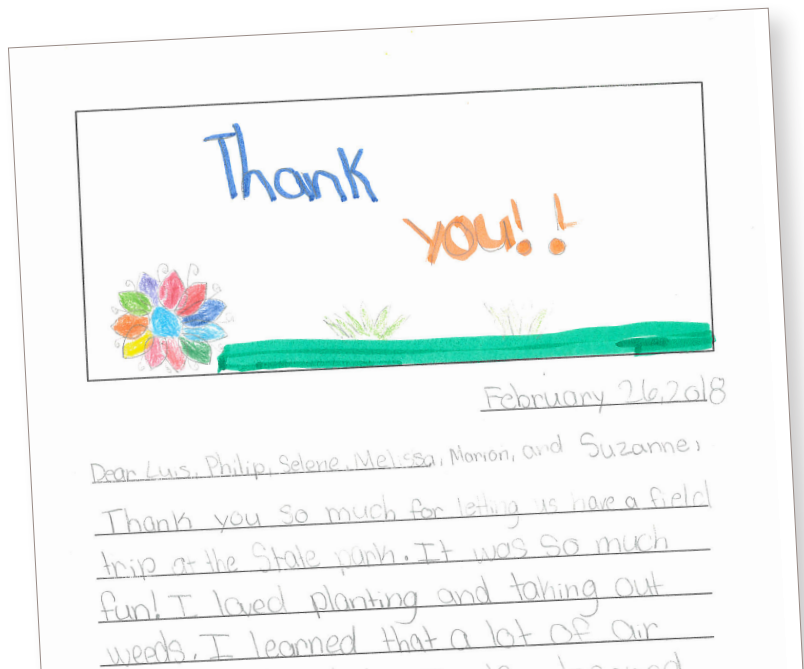 Thank
you!!
February 26, 2018
Dear Luis, Philip, Selene, Melissa, Marion, and Suzanne,
Thank you so much for letting us have a field
trip at the State park. It was so much
fun! I loved planting and taking out
weeds. I learned that a lot of air